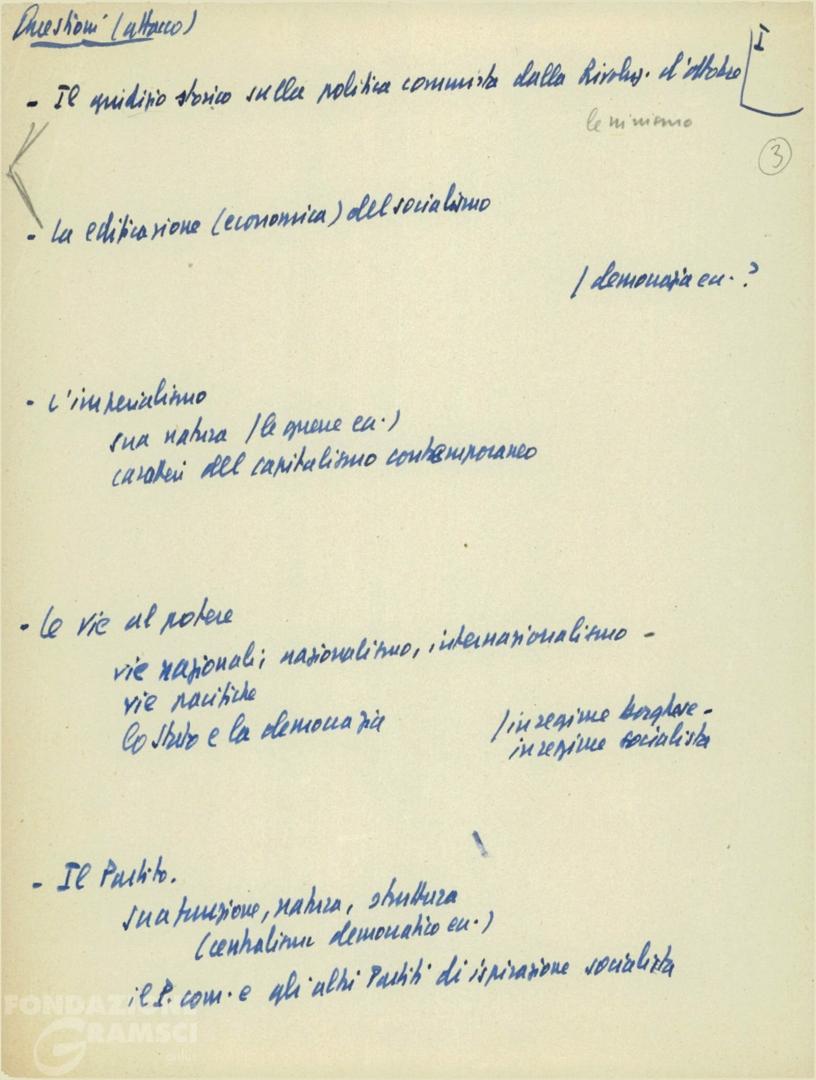 Questioni (attacco)
I
- Il giudizio storico sulla politica comunista dalla Rivoluz. d'ottobre
leninismo
3
- La edificazione (economica) del socialismo
/ democrazia ecc. ?
- L'imperialismo
sua natura / le guerre ecc.)
caratteri del capitalismo contemporaneo
- Le vie al potere
vie nazionali; nazionalismo, internazionalismo -
vie pacifiche
Lo Stato e la democrazia
/ in regime borghese -
in regime socialista
- Il Partito.
sua funzione, natura, struttura
(centralismo democratico ecc.)
il P. com. e gli altri Partiti di ispirazione socialista
FONDAZIONE
GRAMSCI